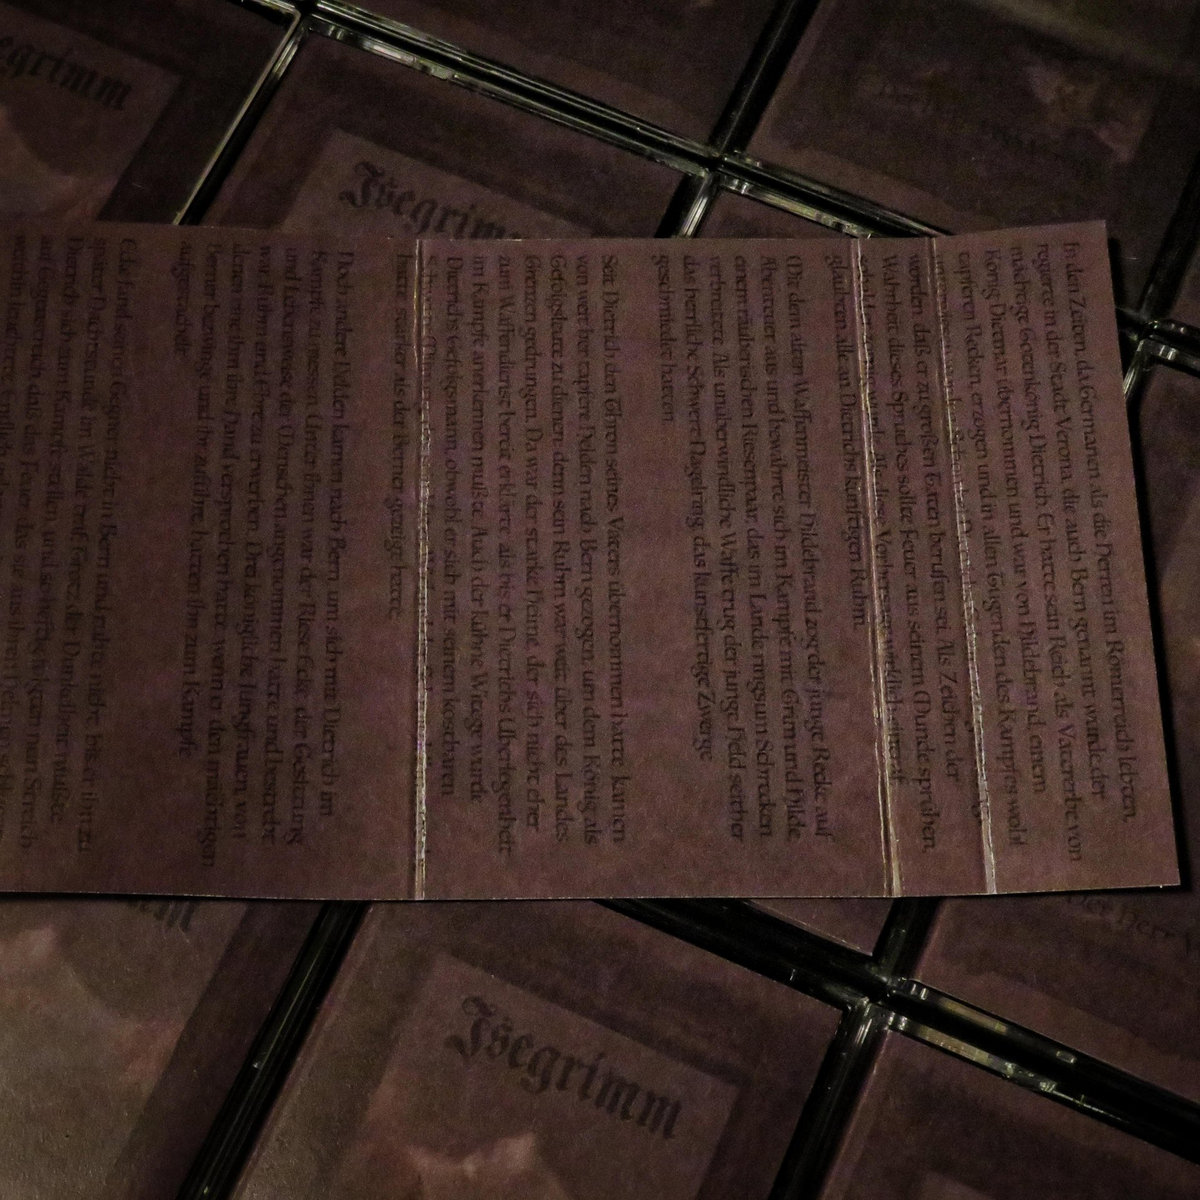 Isegrimm
Isegrimm
In den Zeiten, da Germanen als die Herren im Römerreich lebten,
regierte in der Stadt Verona, die auch Bern genannt wurde, der
mächtige Gotenkönig Dietrich. Er hatte sein Reich als Vatererbe von
König Dietmar übernommen und war von Hildebrand, einem
tapferen Recken, erzogen und in allen Tugenden des Kampfes wohl
werden, daß er zu großen Taten berufen sei. Als Zeichen der
Wahrheit dieses Spruches sollte Feuer aus seinem Munde sprühen,
glaubten alle an Dietrichs künftigen Ruhm.
Mit dem alten Waffenmeister Hildebrand zog der junge Recke auf
Abenteuer aus und bewährte sich im Kampfe mit Grim und Hilde,
einem räuberischen Riesenpaar, das im Lande ringsum Schrecken
verbreitete. Als unüberwindliche Waffe trug der junge Held seither
das herrliche Schwert Nagelring, das kunstfertige Zwerge
geschmiedet hatten.
Seit Dietrich den Thron seines Vaters übernommen hatte, kamen
von weit her tapfere Helden nach Bern gezogen, um dem König als
Gefolgsleute zu dienen, denn sein Ruhm war weit über des Landes
Grenzen gedrungen. Da war der starke Heime, der sich nicht eher
zum Waffendienst bereit erklärte, als bis er Dietrichs Überlegenheit
im Kampfe anerkennen mußte. Auch der kühne Witege wurde
Dietrichs Gefolgsmann, obwohl er sich mit seinem kostbaren
hatte stärker als der Berner gezeigt hatte.
Doch andere Helden kamen nach Bern, um sich mit Dietrich im
Kampfe zu messen. Unter ihnen war der Riese Ecke, der Gesittung
und Lebensweise der Menschen angenommen hatte und bestrebt
war, Ruhm und Ehre zu erwerben. Drei königliche Jungfrauen, von
denen eine ihm ihre Hand versprochen hatte, wenn er den mächtigen
Berner bezwinge und ihr zuführe, hatten ihn zum Kampfe
aufgestachelt.
Ecke fand seinen Gegner nicht in Bern und ruhte nicht, bis er ihn zu
später Nachtstunde im Walde traf. Trotz der Dunkelheit mußte
Dietrich sich zum Kampfe stellen, und so
auf Gegenstreich, daß das Feuer, das sie aus ihren Helmen
weithin leuchtete. Endlich
Isegrimm